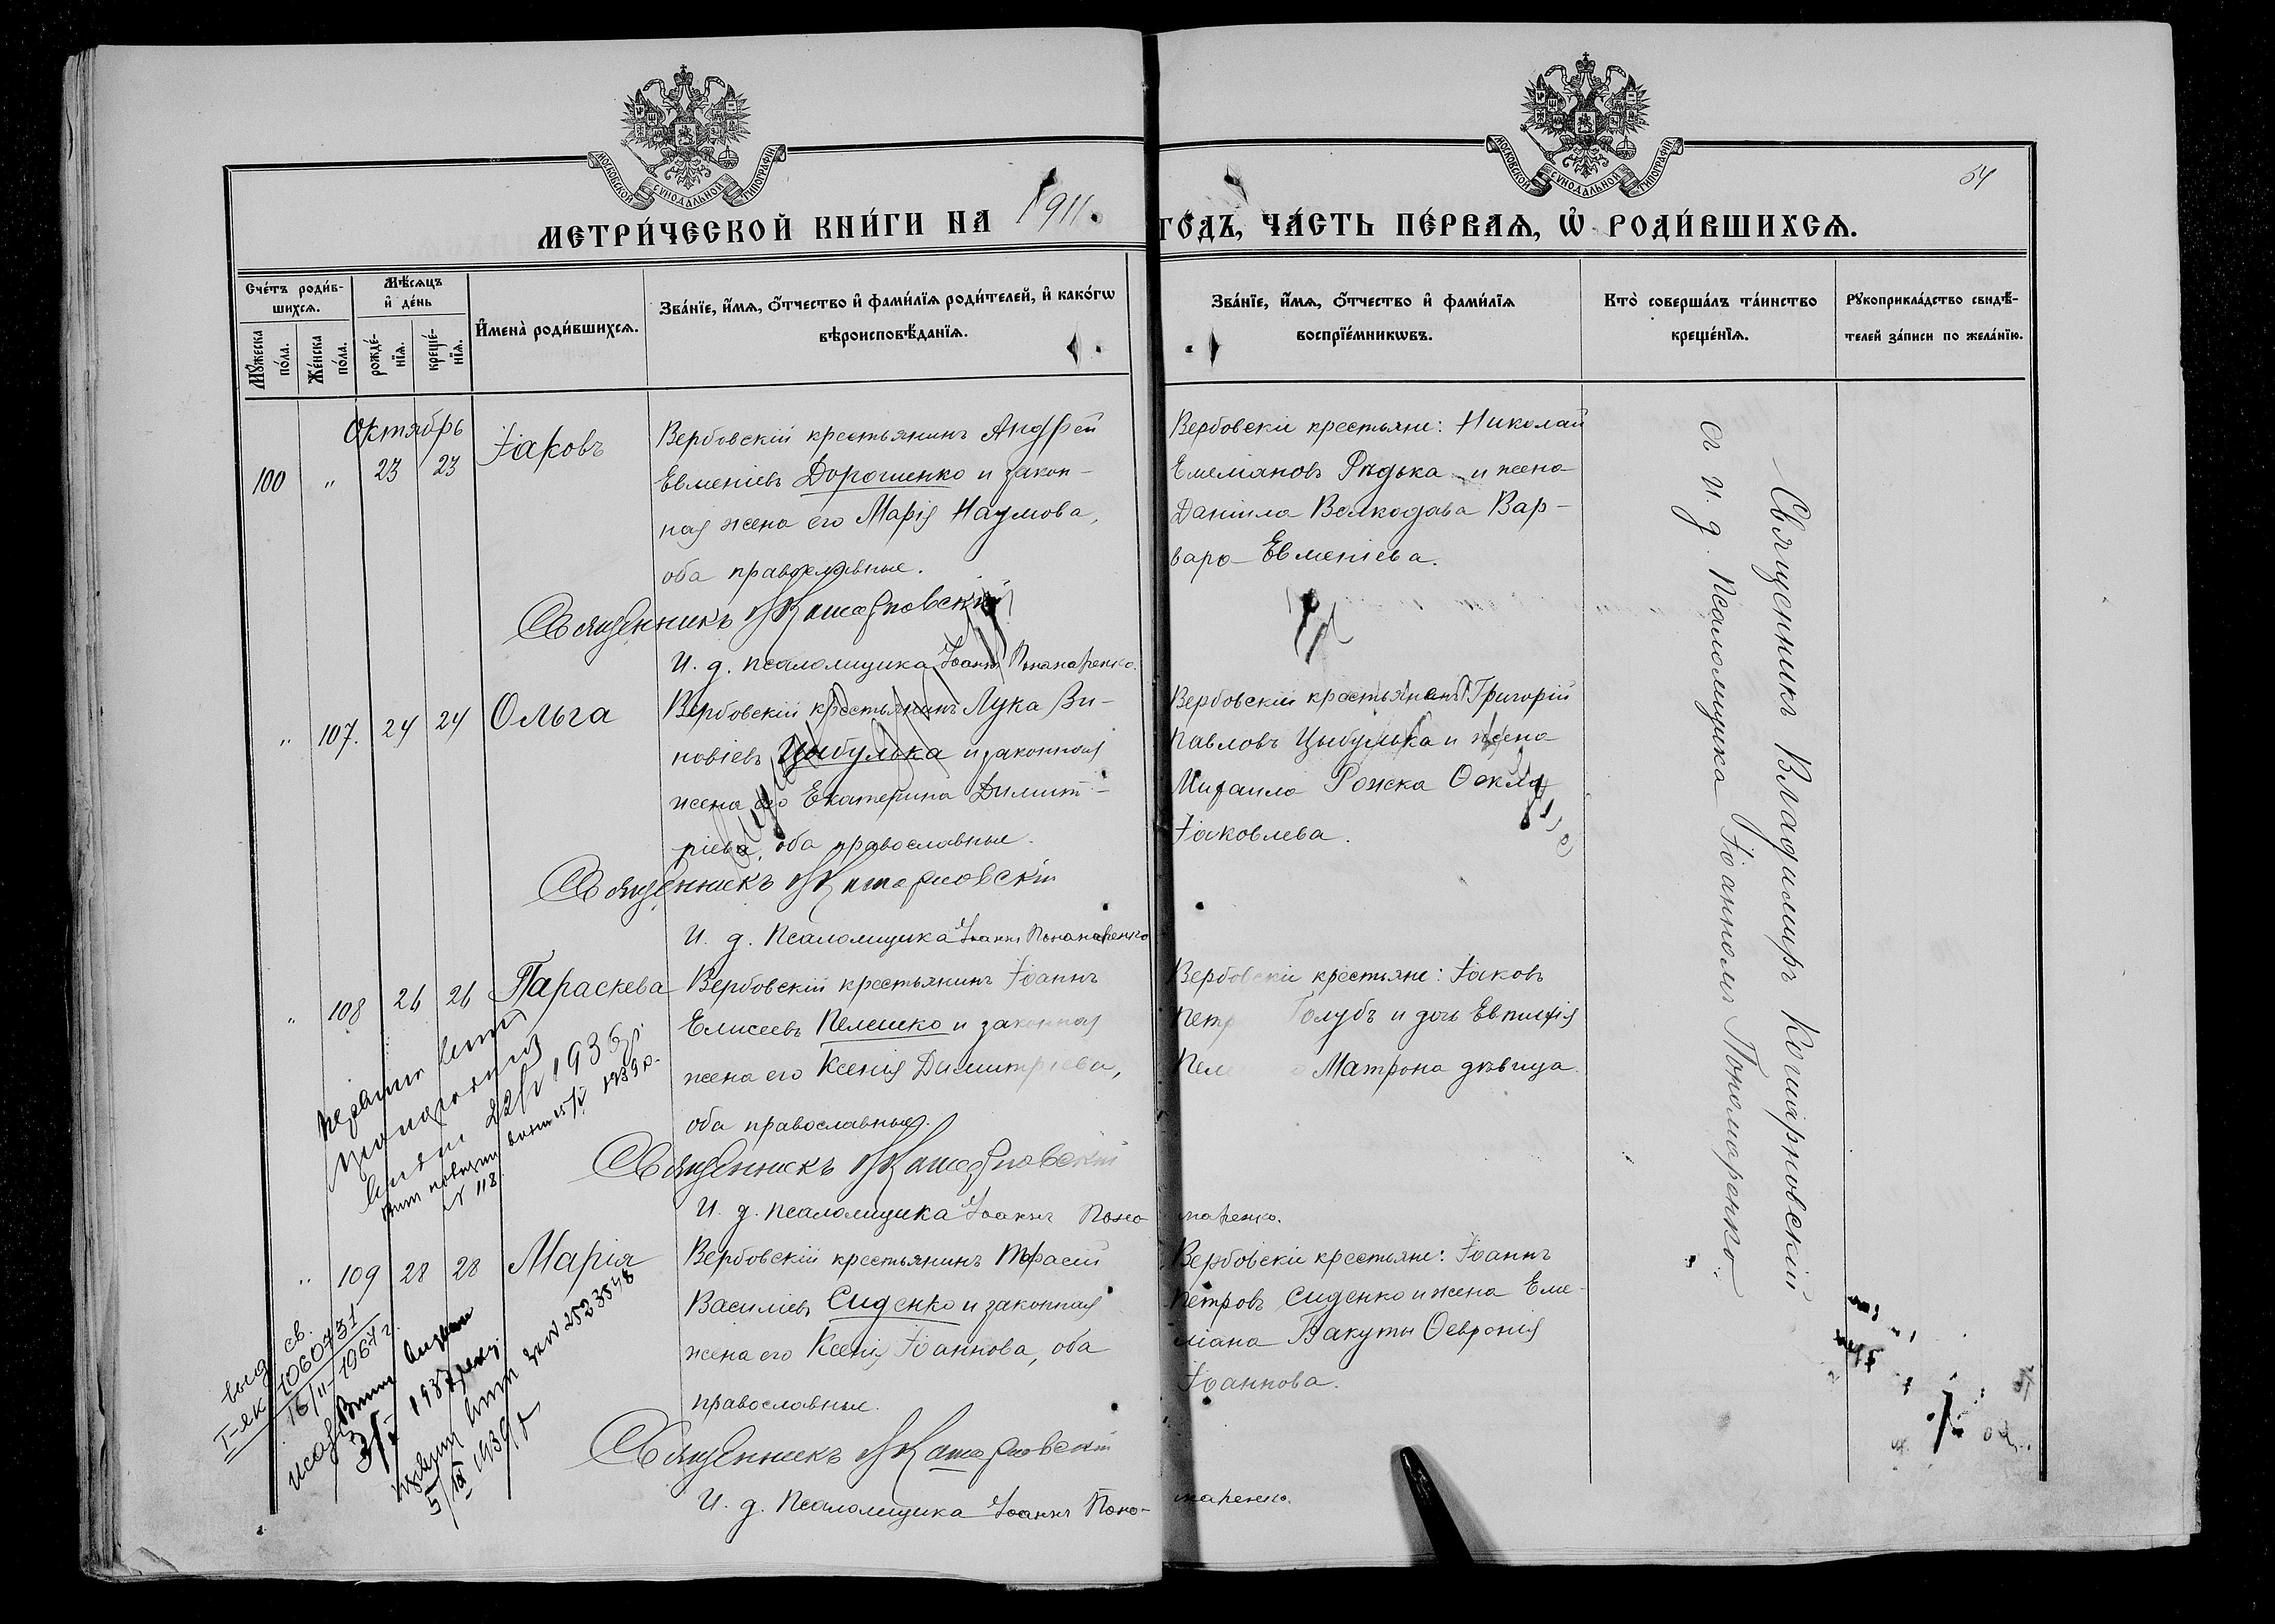 МОСКОВСКОЙ СѴНОДАЛЬНОЙ ТИПОГРАФІИ
МОСКОВСКОЙ СѴНОДАЛЬНОЙ ТИПОГРАФІИ
54
МЕТРИ́ЧЕСКОЙ КНИ́ГИ НА 1911
ГО́ДЪ, ЧА́СТЬ ПЕ́РВАѦ, Ѡ҆ РОДИ́ВШИХСѦ.
Сче́тъ роди́в-
шихсѧ.
Мꙋ́жеска по́ла.
Же́нска по́ла.
Мѣ́сѧцъ
и҆ де́нь
рожде́-
нїѧ.
креще́-
нїѧ.
И҆мена̀ роди́вшихсѧ.
Зва́нїе, и҆́мѧ, ѻ҆́тчество и҆ фами́лїѧ роди́телей, и҆ како́гѡ
вѣроисповѣ́данїѧ.
Зва́нїе, и҆́мѧ, ѻ҆́тчество и҆ фами́лїѧ
воспрїе́мникѡвъ.
Кто̀ соверша́лъ та́инство
креще́нїѧ.
Рꙋкоприкла́дство свидѣ́-
телей за́писи по жела́нїю.
Октябрь
100 " 23 23 Іаковъ
Вербовскій крестьянинъ Андрей
Евменіевъ Дорошенко и закон-
ная жена его Марія Наумова,
оба православные.
Священникъ В Кошарновскій
И. д. псаломщика Іоаннъ Пономаренко.
Вербовскіе крестьяне: Николай
Емеліановъ Рѣдька и жена
Даніила Волкодава Вар-
вара Евменіева.
" 107. 24 24 Ольга
Вербовскій крестьянинъ Лука Зи-
новіевъ Цыбулька и законная
жена его Екатерина Димит-
ріева, оба православные.
Священникъ В Кошарновскій
И. д. Псаломщика Іоаннъ Пономаренко
Вербовскій крестьянинъ Григорій
Павловъ Цыбулька и жена
Михаила Рожка Ѳекла
Іаковлева.
" 108 26 26 Параскева
Вербовскій крестьянинъ Іоаннъ
Елисеевъ Пелешко и законная
жена его Ксенія Димитріева,
оба православные.
Священникъ В Кошарновскій
И. д. Псаломщика Іоаннъ Поно-
маренко.
Вербовскіе крестьяне: Іаковъ
Петр Голубъ и дочь Евпифія
Пеле Матрона дѣвица.
22/V 1936 р.
1939 р.
№ 118
" 109 28 28 Марія
Вербовскій крестьянинъ Тарасій
Василіевъ Сиденко и законная
жена его Ксенія Іоаннова, оба
православные.
Священникъ В Кошарновскій
И. д. Псаломщика Іоаннъ Поно-
маренко.
Вербовскіе крестьяне: Іоаннъ
Петровъ Сиденко и жена Еме-
ліана Бакуты Ѳевронія
Іоаннова.
выд. св.
I-ЯК 1060731
16/II-1967 г.
1937 року
2523548
Священникъ Владимиръ Кошарновскій
съ и. д. Псаломщика Іоанномъ Пономаренко